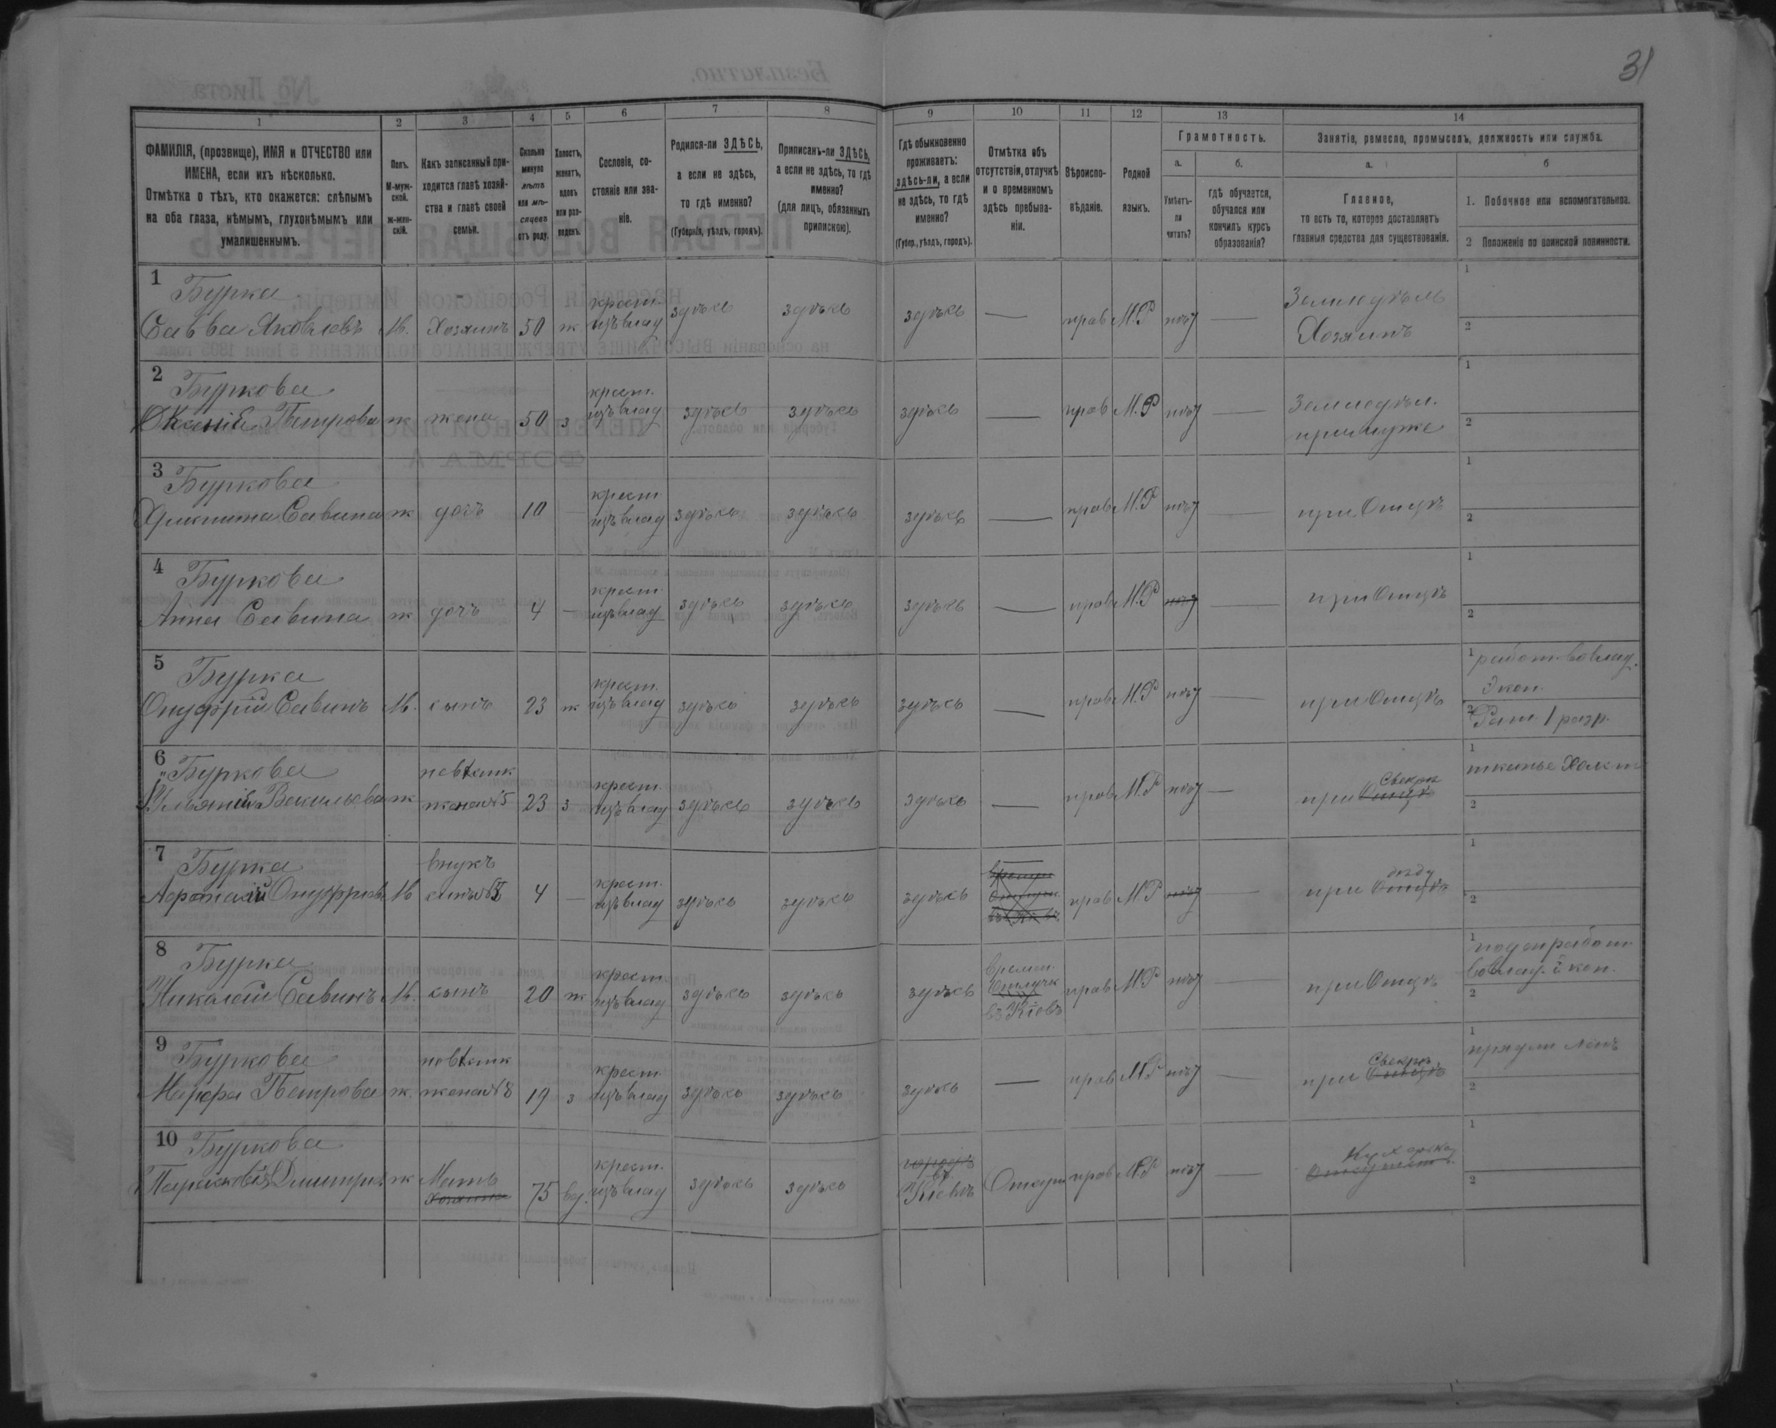 31
1
2
3
4
5
6
7
8
9
10
11
12
13
14
ФАМИЛІЯ, (прозвище), ИМЯ и ОТЧЕСТВО или
ИМЕНА, если ихъ нѣсколько.
Отмѣтка о тѣхъ, кто окажется: слѣпымъ
на оба глаза, нѣмымъ, глухонѣмымъ или
умалишеннымъ.
Полъ.
М-муж-
ской.
ж-жен-
скій.
Какъ записанный при-
ходится главѣ хозяй-
ства и главѣ своей
семьи.
Сколько
минуло
лѣтъ
или мѣ-
сяцевъ
отъ роду.
Холостъ,
женатъ,
вдовъ
или раз-
веденъ.
Сословіе, со-
стояніе или зва-
ніе.
Родился-ли ЗДѢСЬ,
а если не здѣсь,
то гдѣ именно?
(Губернія, уѣздъ, городъ).
Приписанъ-ли ЗДѢСЬ,
а если не здѣсь, то гдѣ
именно?
(для лицъ, обязанныхъ
припискою).
Гдѣ обыкновенно
проживаетъ:
здѣсь-ли, а если
не здѣсь, то гдѣ
именно?
(Губер., уѣздъ, городъ).
Отмѣтка объ
отсутствіи, отлучкѣ
и о временномъ
здѣсь пребыва-
ніи.
Вѣроиспо-
вѣданіе.
Родной
языкъ.
Грамотность.
а.
Умѣетъ-
ли
читать?
б.
Гдѣ обучается,
обучался или
кончилъ курсъ
образованія?
Занятіе, ремесло, промыселъ, должность или служба.
а.
Главное,
то есть то, которое доставляетъ
главныя средства для существованія.
б
1. Побочное или вспомогательное.
2 Положеніе по воинской повинности.
1
Бурка
Савва Яковлевъ М. Хозяинъ 50 ж крест. изъ влад здѣсь здѣсь здѣсь — прав М.Р нѣт —
Земледѣль
Хозяинъ
1
2
2
Буркова
Ксенія Петрова ж жена 50 з крест. изъ влад здѣсь здѣсь здѣсь — прав М.Р нѣт —
Земледѣл.
при муже
1
2
3
Буркова
Савина ж дочь 10 — крест изъ влад здѣсь здѣсь здѣсь — прав М.Р нѣт — при Отцѣ
1
2
4
Буркова
Анна Савина ж дочь 4 — крест. изъ влад здѣсь здѣсь здѣсь — прав М.Р нѣт — при Отцѣ
1
2
5
Бурка
Онуфрій Савинъ М. сынъ 23 ж крест. изъ влад здѣсь здѣсь здѣсь — прав М.Р нѣт — при Отцѣ
1 работ. во влад.
Экон.
2 Рат 1 разр.
6
Буркова
Ульянія Васильева ж невѣстк жена №5 23 з крест. изъ влад здѣсь здѣсь здѣсь — прав М.Р нѣт — при Свекрѣ
1
тканье Холст
2
7
Бурка
Онуфріевъ М внукъ сынъ №5 4 — крест. изъ влад здѣсь здѣсь здѣсь прав М.Р нѣт — при дѣду
1
2
8
Бурка
Николай Савинъ М. сынъ 20 ж крест изъ влад здѣсь здѣсь здѣсь времен. Отлучк въ Кіевъ прав М.Р нѣт — при Отцѣ
1 поденработ
во влад. Экон.
2
9
Буркова
Марфа Петрова ж. невѣстк жена №8 19 з крест изъ влад здѣсь здѣсь здѣсь — прав М.Р нѣт — при Свекрѣ
1
прядет лёнъ
2
10
Буркова
Параскевія Дмитріев ж Мать хозяина 75 вд. крест. изъ влад здѣсь здѣсь городъ Кіевъ прав М.Р нѣт — Кухарка
1
2